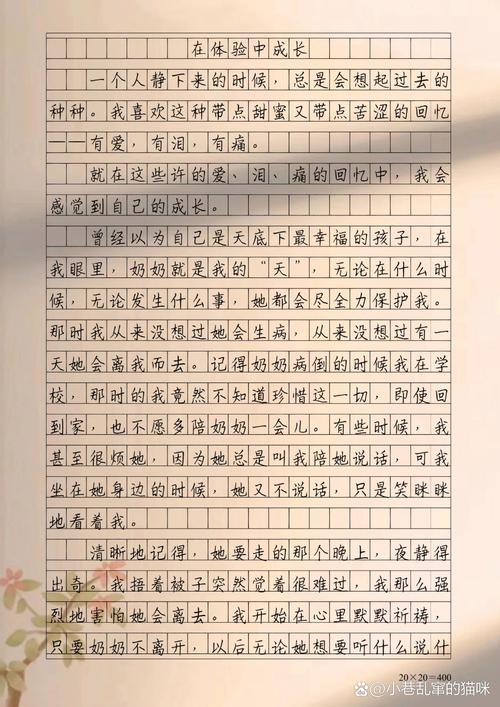 在体验中成长
一个人静下来的时候，总是会想起过去的
种种。我喜欢这种带点甜蜜又带点苦涩的回忆
——有爱，有泪，有痛。
就在这些许的爱、泪、痛的回忆中，我会
感觉到自己的成长。
曾经以为自己是天底下最幸福的孩子，在
我眼里，奶奶就是我的“天”，无论在什么时
候，无论发生什么事，她都会尽全力保护我。
那时我从来没想过她会生病，从来没想过有一
天她会离我而去。记得奶奶病倒的时候我在学
校，那时的我竟然不知道珍惜这一切，即使回
到家，也不愿多陪奶奶一会儿。有些时候，我
甚至很烦她，因为她总是叫我陪她说话，可我
坐在她身边的时候，她又不说话，只是笑眯眯
地看着我。
清晰地记得，她要走的那个晚上，夜静得
出奇。我捂着被子突然觉着很难过，我那么强
烈地害怕她会离去。我开始在心里默默祈祷，
只要奶奶不离开，以后无论她想要听什么说什
20×20=400
@小巷乱窜的猫咪